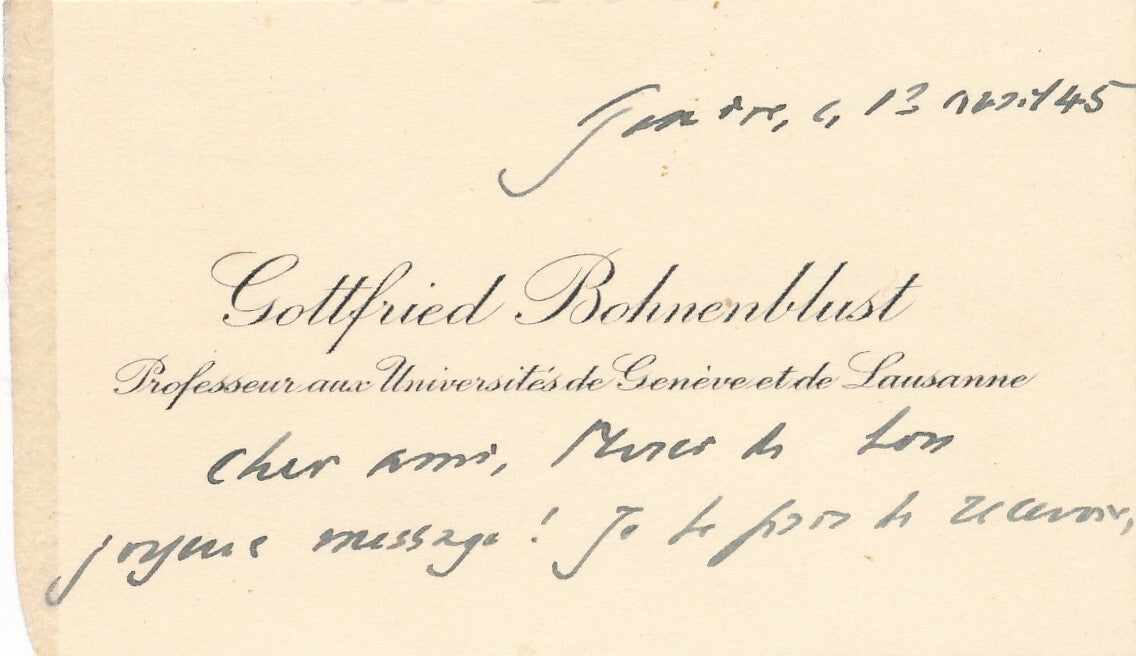 Genève, le 13 avril 45
Gottfried Bohnenblust
Professeur aux Universités de Genève et de Lausanne
Cher ami, Merci de ton
joyeux message! Je te prie de recevoir,